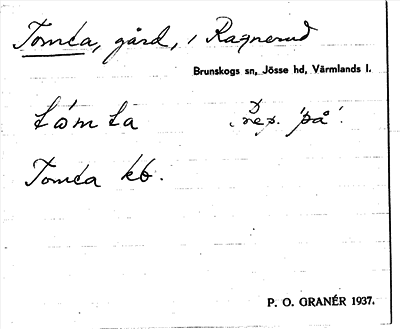 Tomta, gård, i Ragnerud
Brunskogs sn, Jösse hd, Värmlands l.
tòmta prep. 'på'.
Tomta kb.
P. O. GRANÉR 1937.